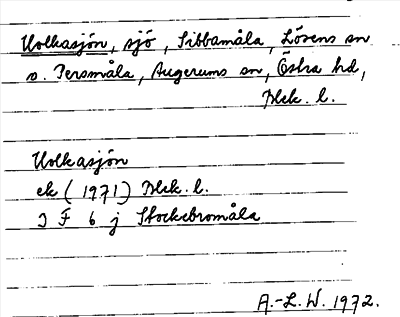 Uolkasjön, sjö, Sibbamåla, Lösens sn
o. Persmåla, Augerums sn, Östra hd,
Blek. l.
Uolkasjön
ek (1971) Blek. l.
3 F 6 j Stockebromåla
A.-L. W. 1972.